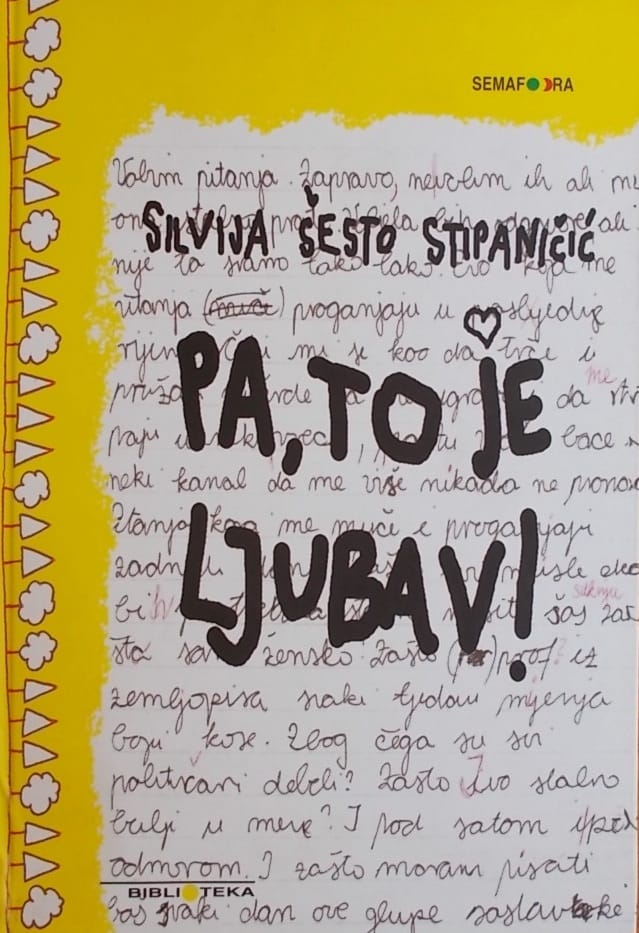 SEMAFORA
Volim pitanja. Zapravo, ne volim ih ali
SILVIJA ŠESTO STIPANIČIĆ
nije to samo tako lako. Evo koja me
pitanja (muče) proganjaju u posljednje
PA, TO JE
LJUBAV!
mi se kao da trče i
me
da
bace
neki kanal da me više nikada ne
Pitanja koja me muče i proganjaju
zadnj
misle
bi
šaš
šta sam žensko? Zašto prof iz
zemljopisa svaki tjedan mijenja
boju kose. Zbog čega su svi
političari debeli? Zašto Ivo stalno
bulji u mene? I pod satom i pod
odmorom. I zašto moram pisati
BIBLIOTEKA
baš svaki dan ove glupe sastavke